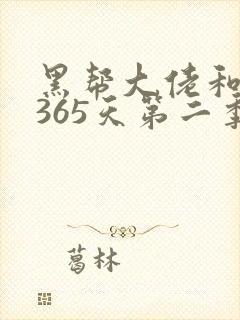 黑帮大佬和
365天第二季
葛林